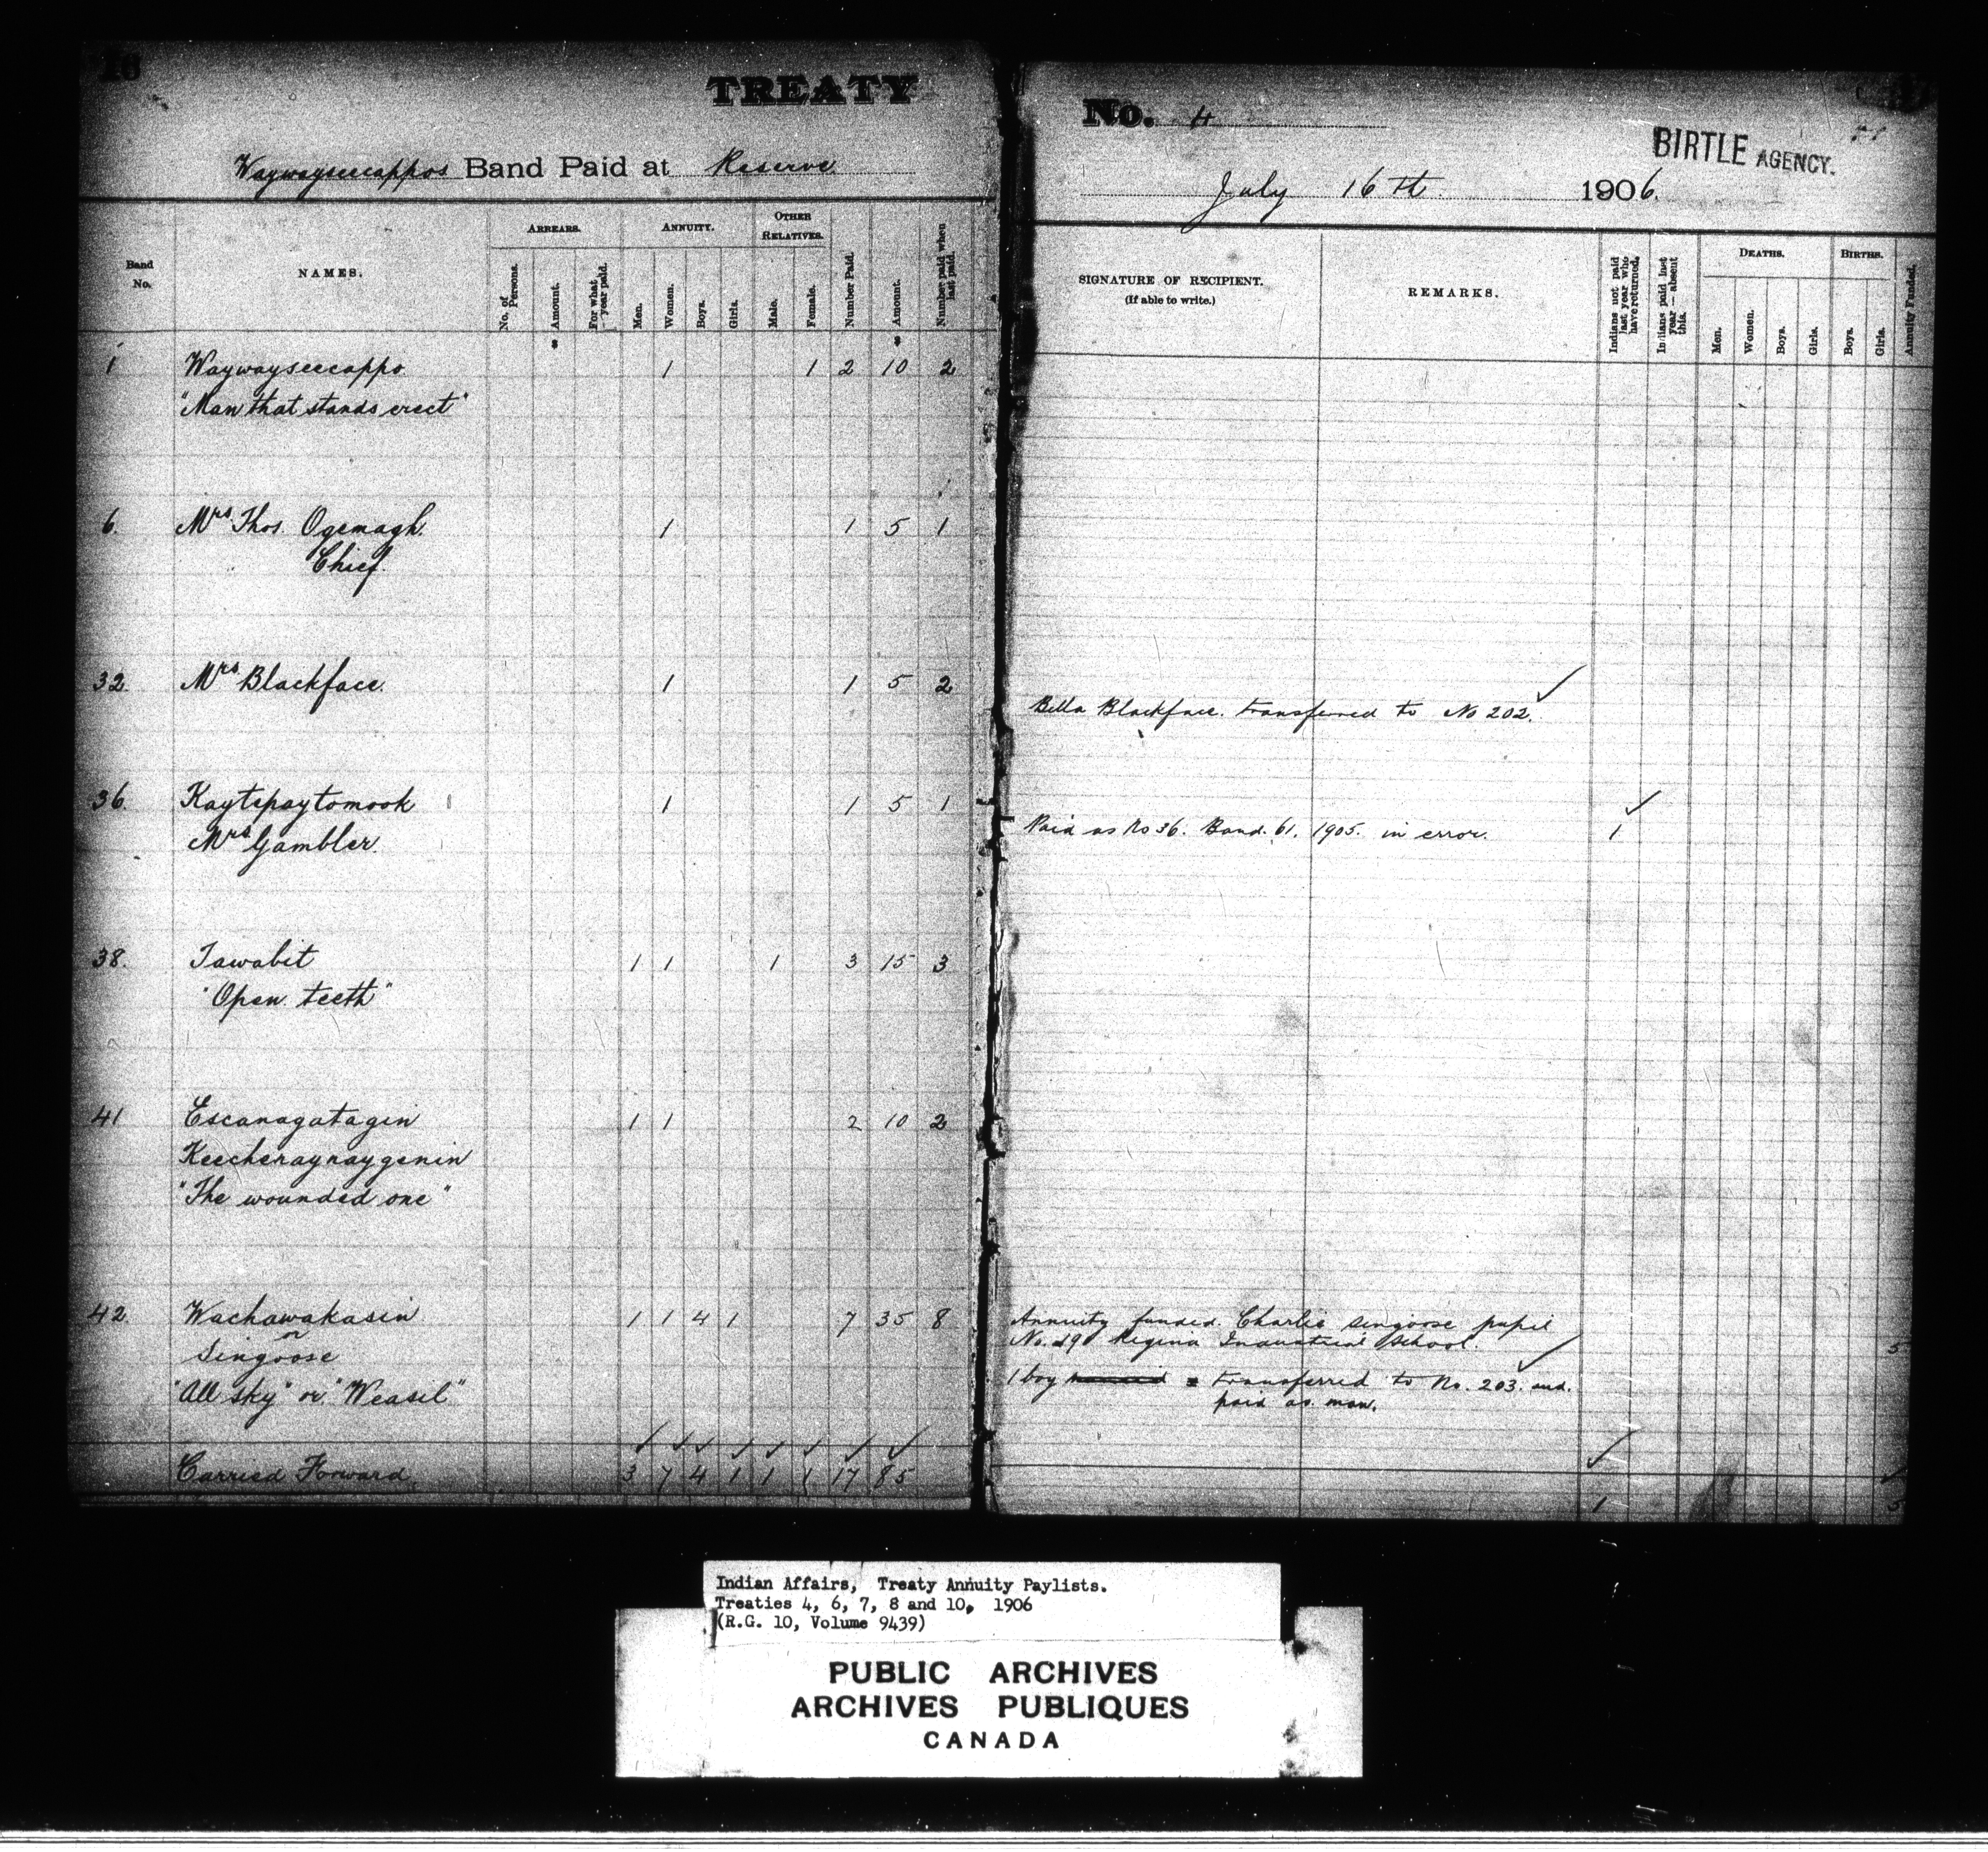 16
TREATY
Waywayseecappos Band Paid at Reserve
Band No.
NAMES.
ARREARS.
No. of Persons.
Amount.
For what year paid.
ANNUITY.
Men.
Women.
Boys.
Girls.
OTHER RELATIVES.
Male.
Female.
Number Paid.
Amount.
Number paid when last paid.
1 Waywayseecappo 1 1 2 10 2
"Man that stands erect"
6. Mrs Thos. Ogemagh. 1 1 5 1
Chief.
32. Mrs Blackface. 1 1 5 2
36. Kaytepaytomook 1 1 5 1
Mrs Gambler.
38. Tawabit 1 1 1 3 15 3
"Open teeth"
41 Escanagatagin 1 1 2 10 2
Keecheraynaygenin
"The wounded one"
42. Wachawakasin 1 1 4 1 7 35 8
or
Singoose
"All sky" or "Weasil"
Carried Forward 3 7 4 1 1 1 17 85
No. 4
BIRTLE AGENCY.
July 16th 1906.
SIGNATURE OF RECIPIENT.
(If able to write.)
REMARKS.
Indians not paid last year who have returned.
Indians paid last year — absent this.
DEATHS.
Men.
Women.
Boys.
Girls.
BIRTHS.
Boys.
Girls.
Annuity Funded.
Bella Blackface. transferred to No 202.
Paid as No 36. Band. 61. 1905. in error. 1
Annuity funded. Charlie Singoose pupil
No. 29 Regina Industrial School. 5
1 boy transferred to No. 203. and.
paid as man.
1 5
Indian Affairs, Treaty Annuity Paylists.
Treaties 4, 6, 7, 8 and 10, 1906
(R.G. 10, Volume 9439)
PUBLIC ARCHIVES
ARCHIVES PUBLIQUES
CANADA